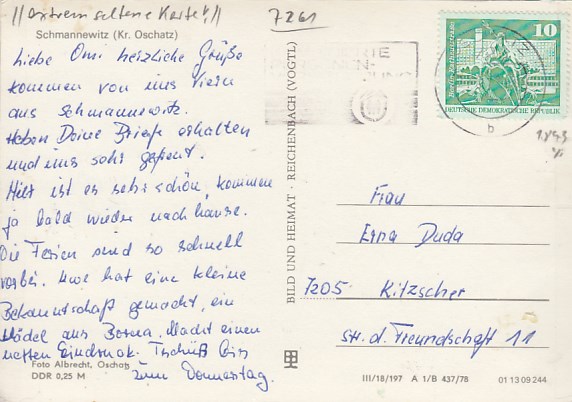 //extrem seltene Karte!//
7261
Schmannewitz (Kr. Oschatz)
liebe Omi herzliche Grüße
kommen von uns Vieren
aus Schmannewitz.
Haben Deine Briefe erhalten
und uns sehr gefreut.
Hier ist es sehr schön, kommen
ja bald wieder nach hause.
Die Ferien sind so schnell
vorbei. Uwe hat eine kleine
Bekanntschaft gemacht, ein
Mädel aus Borna. Macht einen
netten Eindruck. Tschüß bis
zum Donnerstag.
Foto Albrecht, Oschatz
DDR 0,25 M
BILD UND HEIMAT · REICHENBACH (VOGTL)
10
DEUTSCHE DEMOKRATISCHE REPUBLIK
b
Frau
Erna Duda
7205 Kitzscher
Str. d. Freundschaft 11
III/18/197 A 1/B 437/78 01 13 09 244